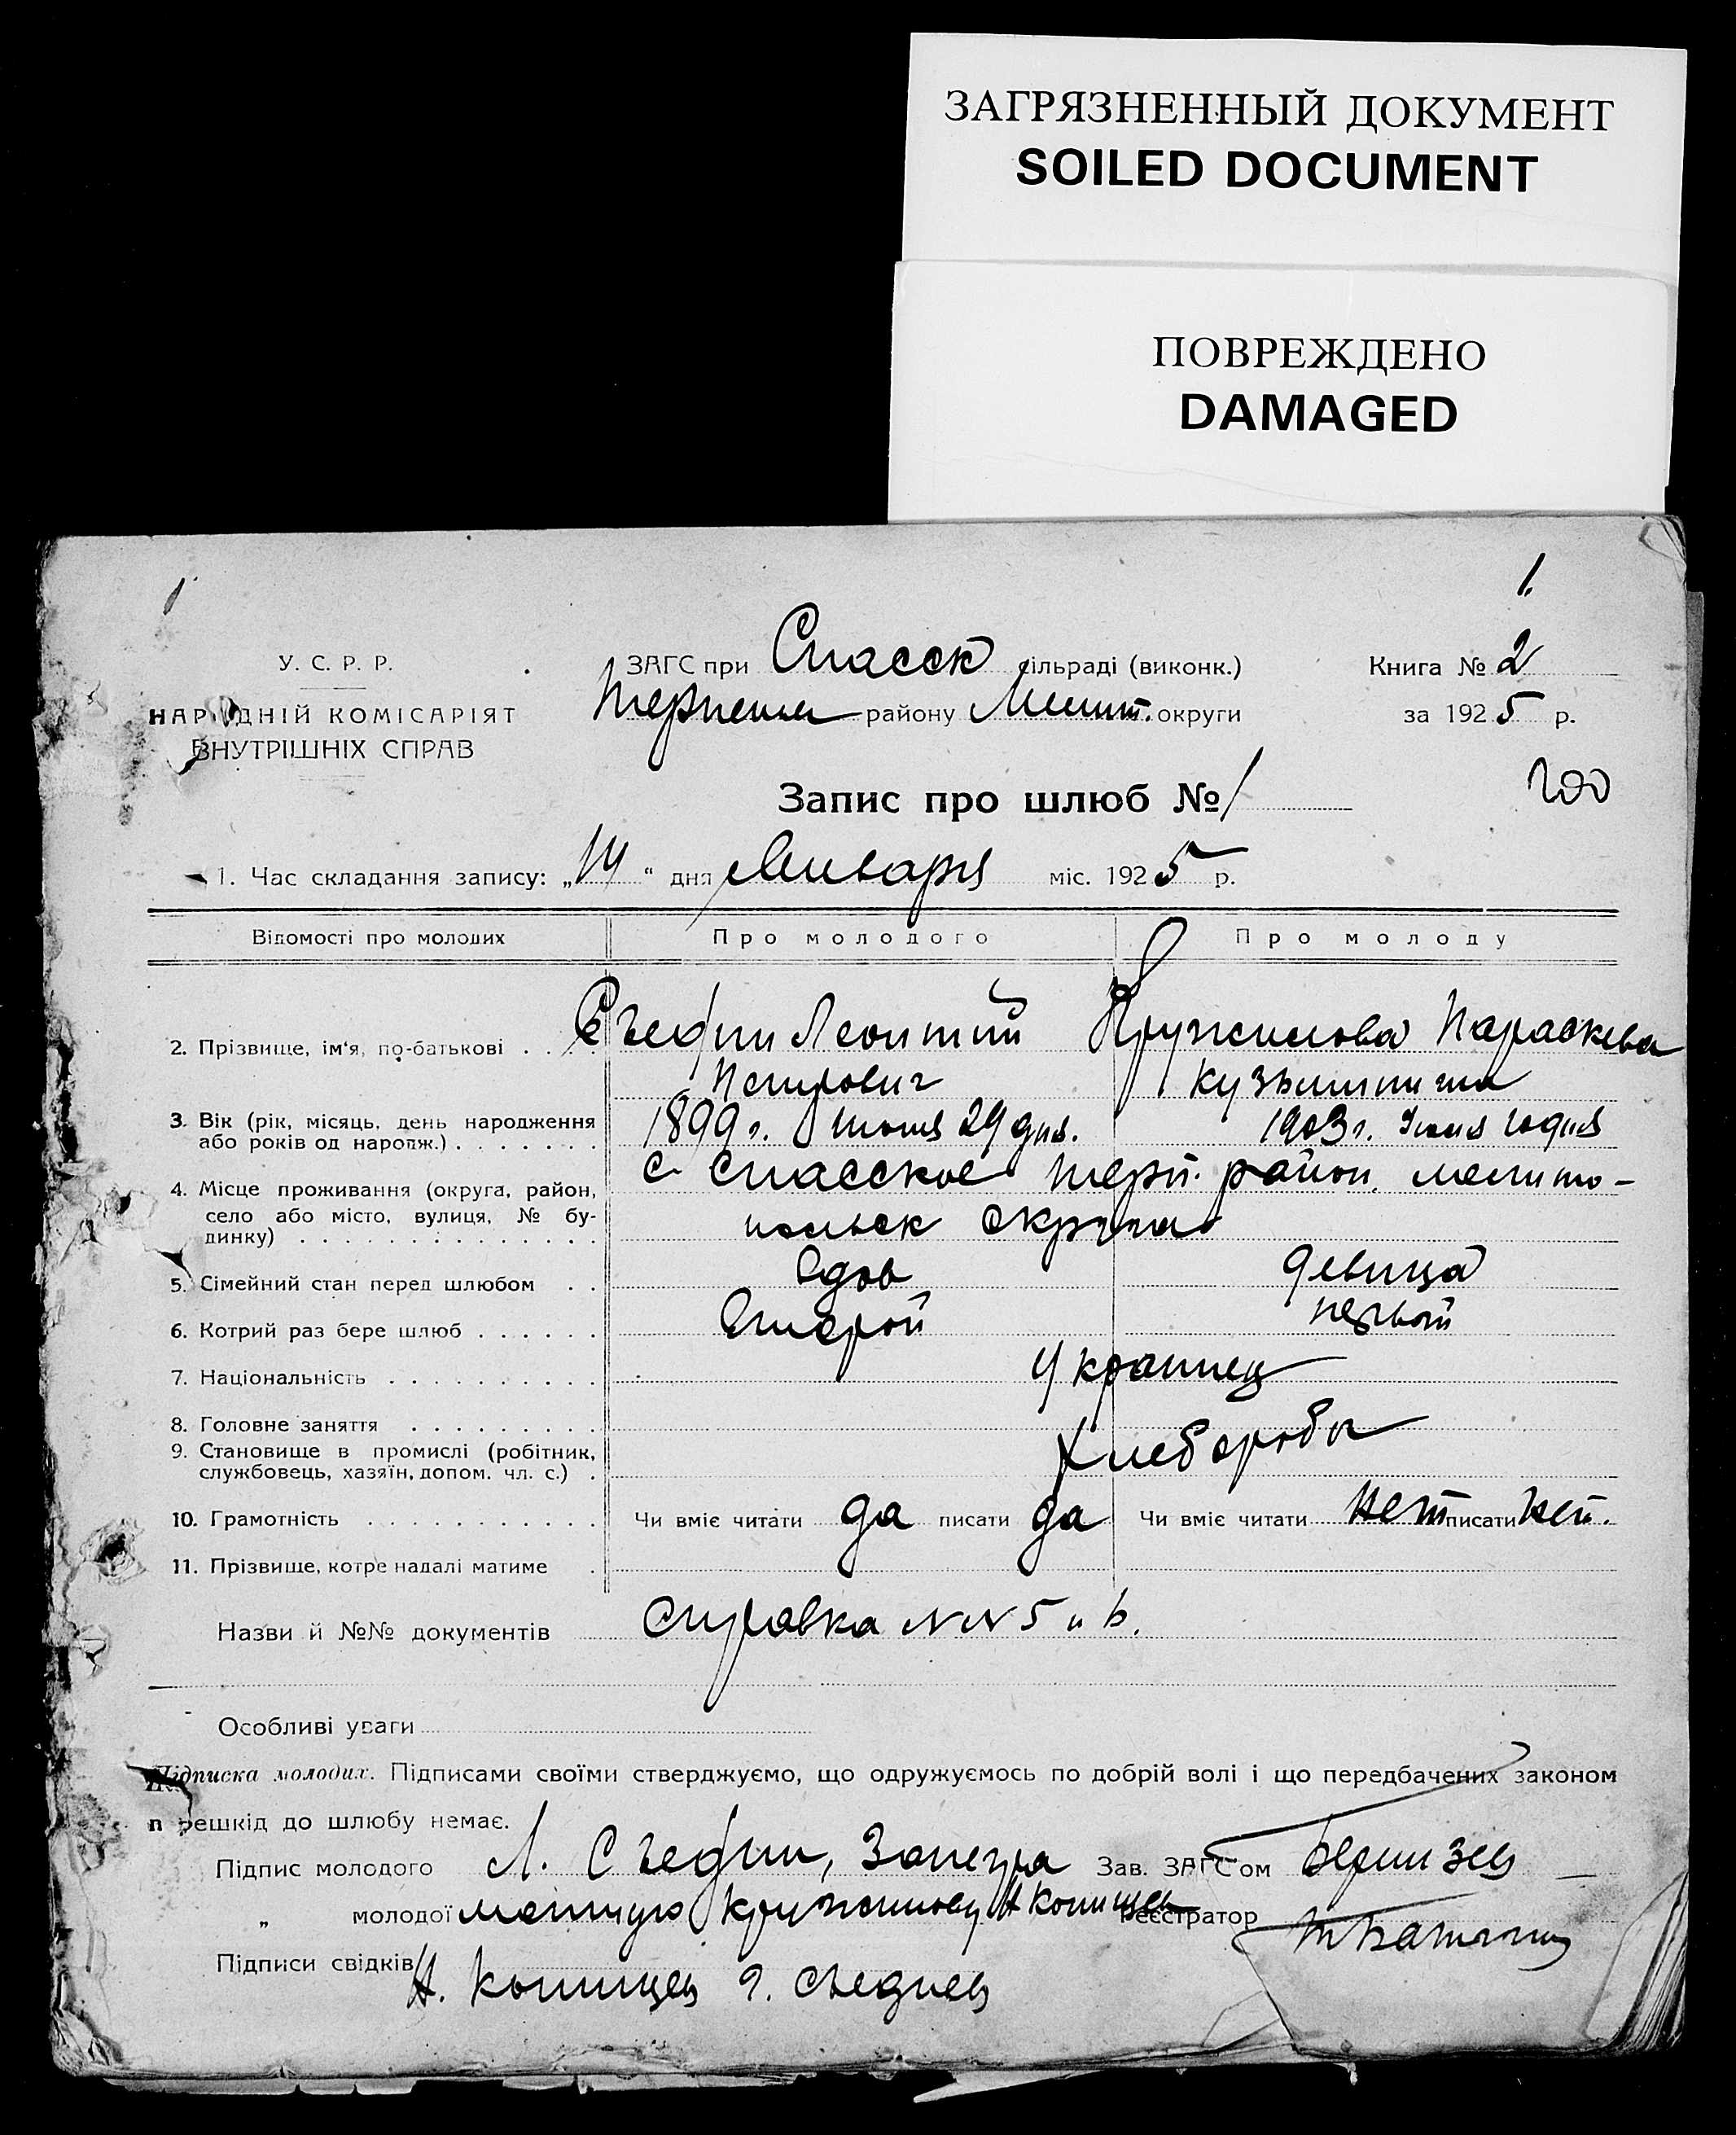 ЗАГРЯЗНЕННЫЙ ДОКУМЕНТ
SOILED DOCUMENT
ПОВРЕЖДЕНО
DAMAGED
1 1.
У. С. Р. Р.
НАРОДНІЙ КОМІСАРІЯТ
ВНУТРІШНІХ СПРАВ
ЗАГС при Спасск сільраді (виконк.)
району Мелит. округи
Книга № 2
за 1925 р.
Запис про шлюб № 1
1. Час складання запису: „14“ дня Января міс. 1925 р.
Відомості про молодих Про молодого Про молоду
2. Прізвище, ім'я, по-батькові . . . . Съедин Леонтий Кружилова Параскева
Петрович Кузьминична
3. Вік (рік, місяць, день народження
або років од народж.) . . . . . . . 1899 г. 29 дня. 1903 г. Июля
4. Місце проживання (округа, район,
село або місто, вулиця, № бу-
динку) . . . . . . . . . . . . . . с Спасское Терп. район, мелито-
польск округа
5. Сімейний стан перед шлюбом . . вдов девица
6. Котрий раз бере шлюб . . . . . . второй первый
7. Національність . . . . . . . . . . Украинец
8. Головне заняття . . . . . . . . .
9. Становище в промислі (робітник,
службовець, хазяїн, допом. чл. с.) . Хлеборобы
10. Грамотність . . . . . . . . . . . Чи вміє читати да писати да Чи вміє читати нет писати нет.
11. Прізвище, котре надалі матиме .
Назви й №№ документів Справка №№ 5 и 6.
Особливі уваги
Підписка молодих. Підписами своїми стверджуємо, що одружуємось по добрій волі і що передбачених законом
перешкід до шлюбу немає.
Підпис молодого Л. Съедин, За негра Зав. ЗАГС'ом
„ молодої Кружилову Н Копицев Реєстратор
Підписи свідків Н. Копицев